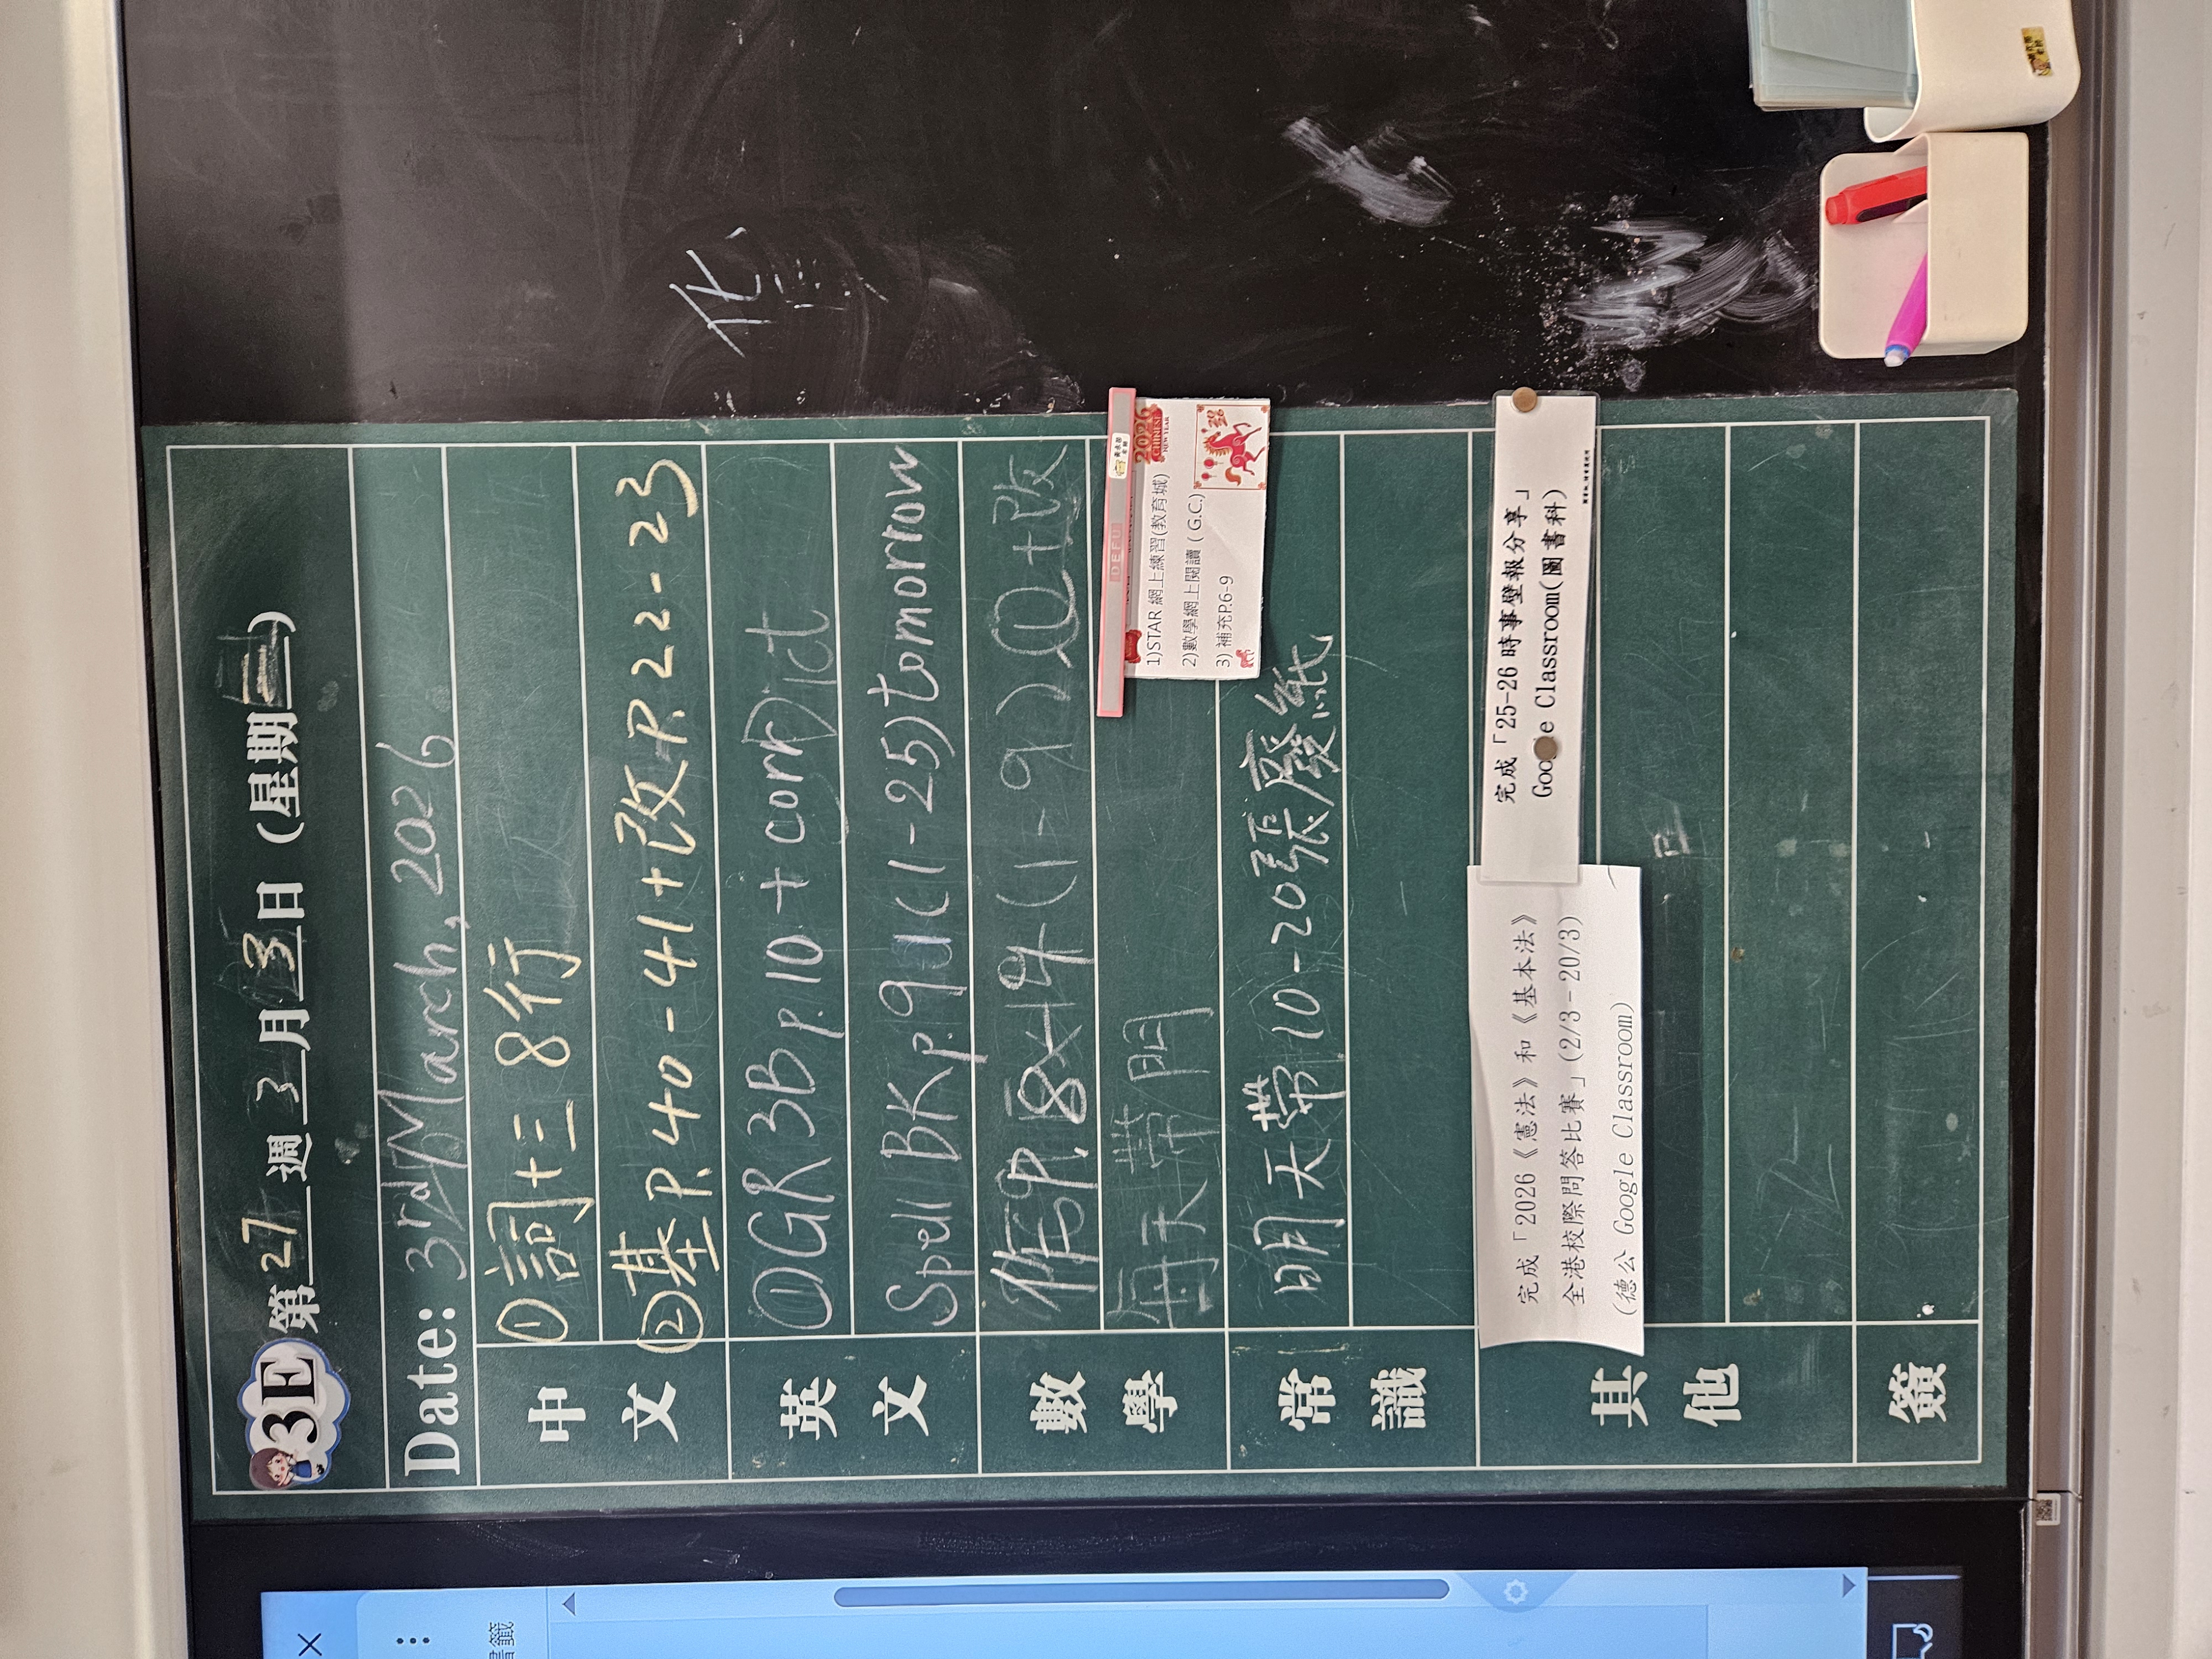 3E 第27週3月3日（星期二）
Date: 3rd March, 2026
中文
①詞十三 8行
②基P.40-41+改P.22-23
英文
①GR3B p.10 + corr
Spell BK p.9 (1-25) tomorrow
數學
作P.18 (1-9)
每天帶
1)STAR 網上練習(教育城)
2)數學網上閱讀（G.C.)
3) 補充P.6-9
2026
CHINESE
NEW YEAR
DEFU
常識
明天帶10-20張廢紙
其他
完成「2026《憲法》和《基本法》
全港校際問答比賽」(2/3-20/3)
(德公 Google Classroom)
完成「25-26 時事壁報分享」
Google Classroom(圖書科)
簽
化
書籤